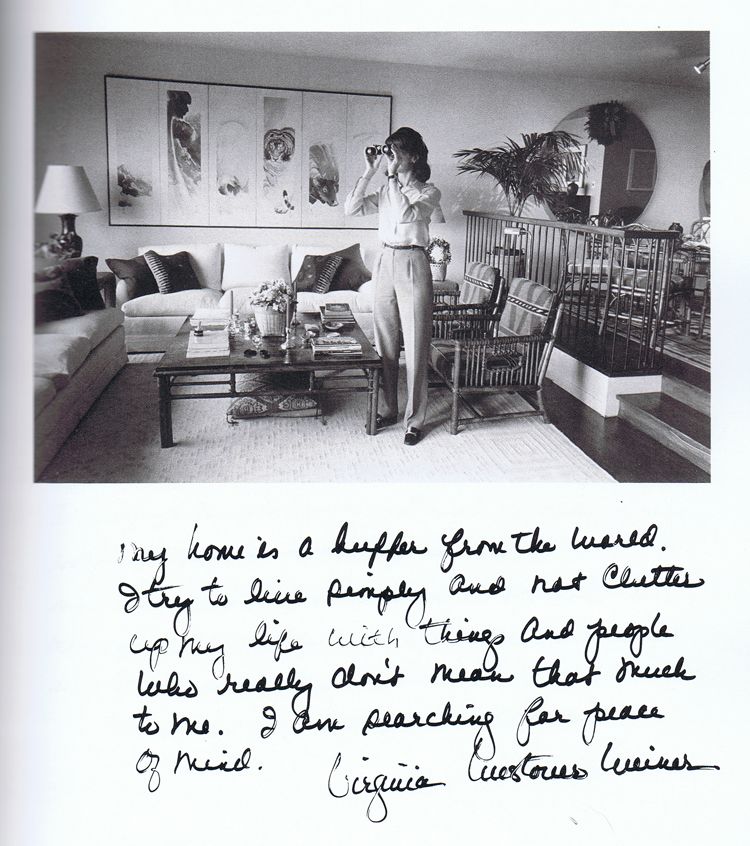 My home is a buffer from the world.
I try to live simply and not clutter
up my life with things and people
who really don't mean that much
to me. I am searching for peace
of mind. Virginia